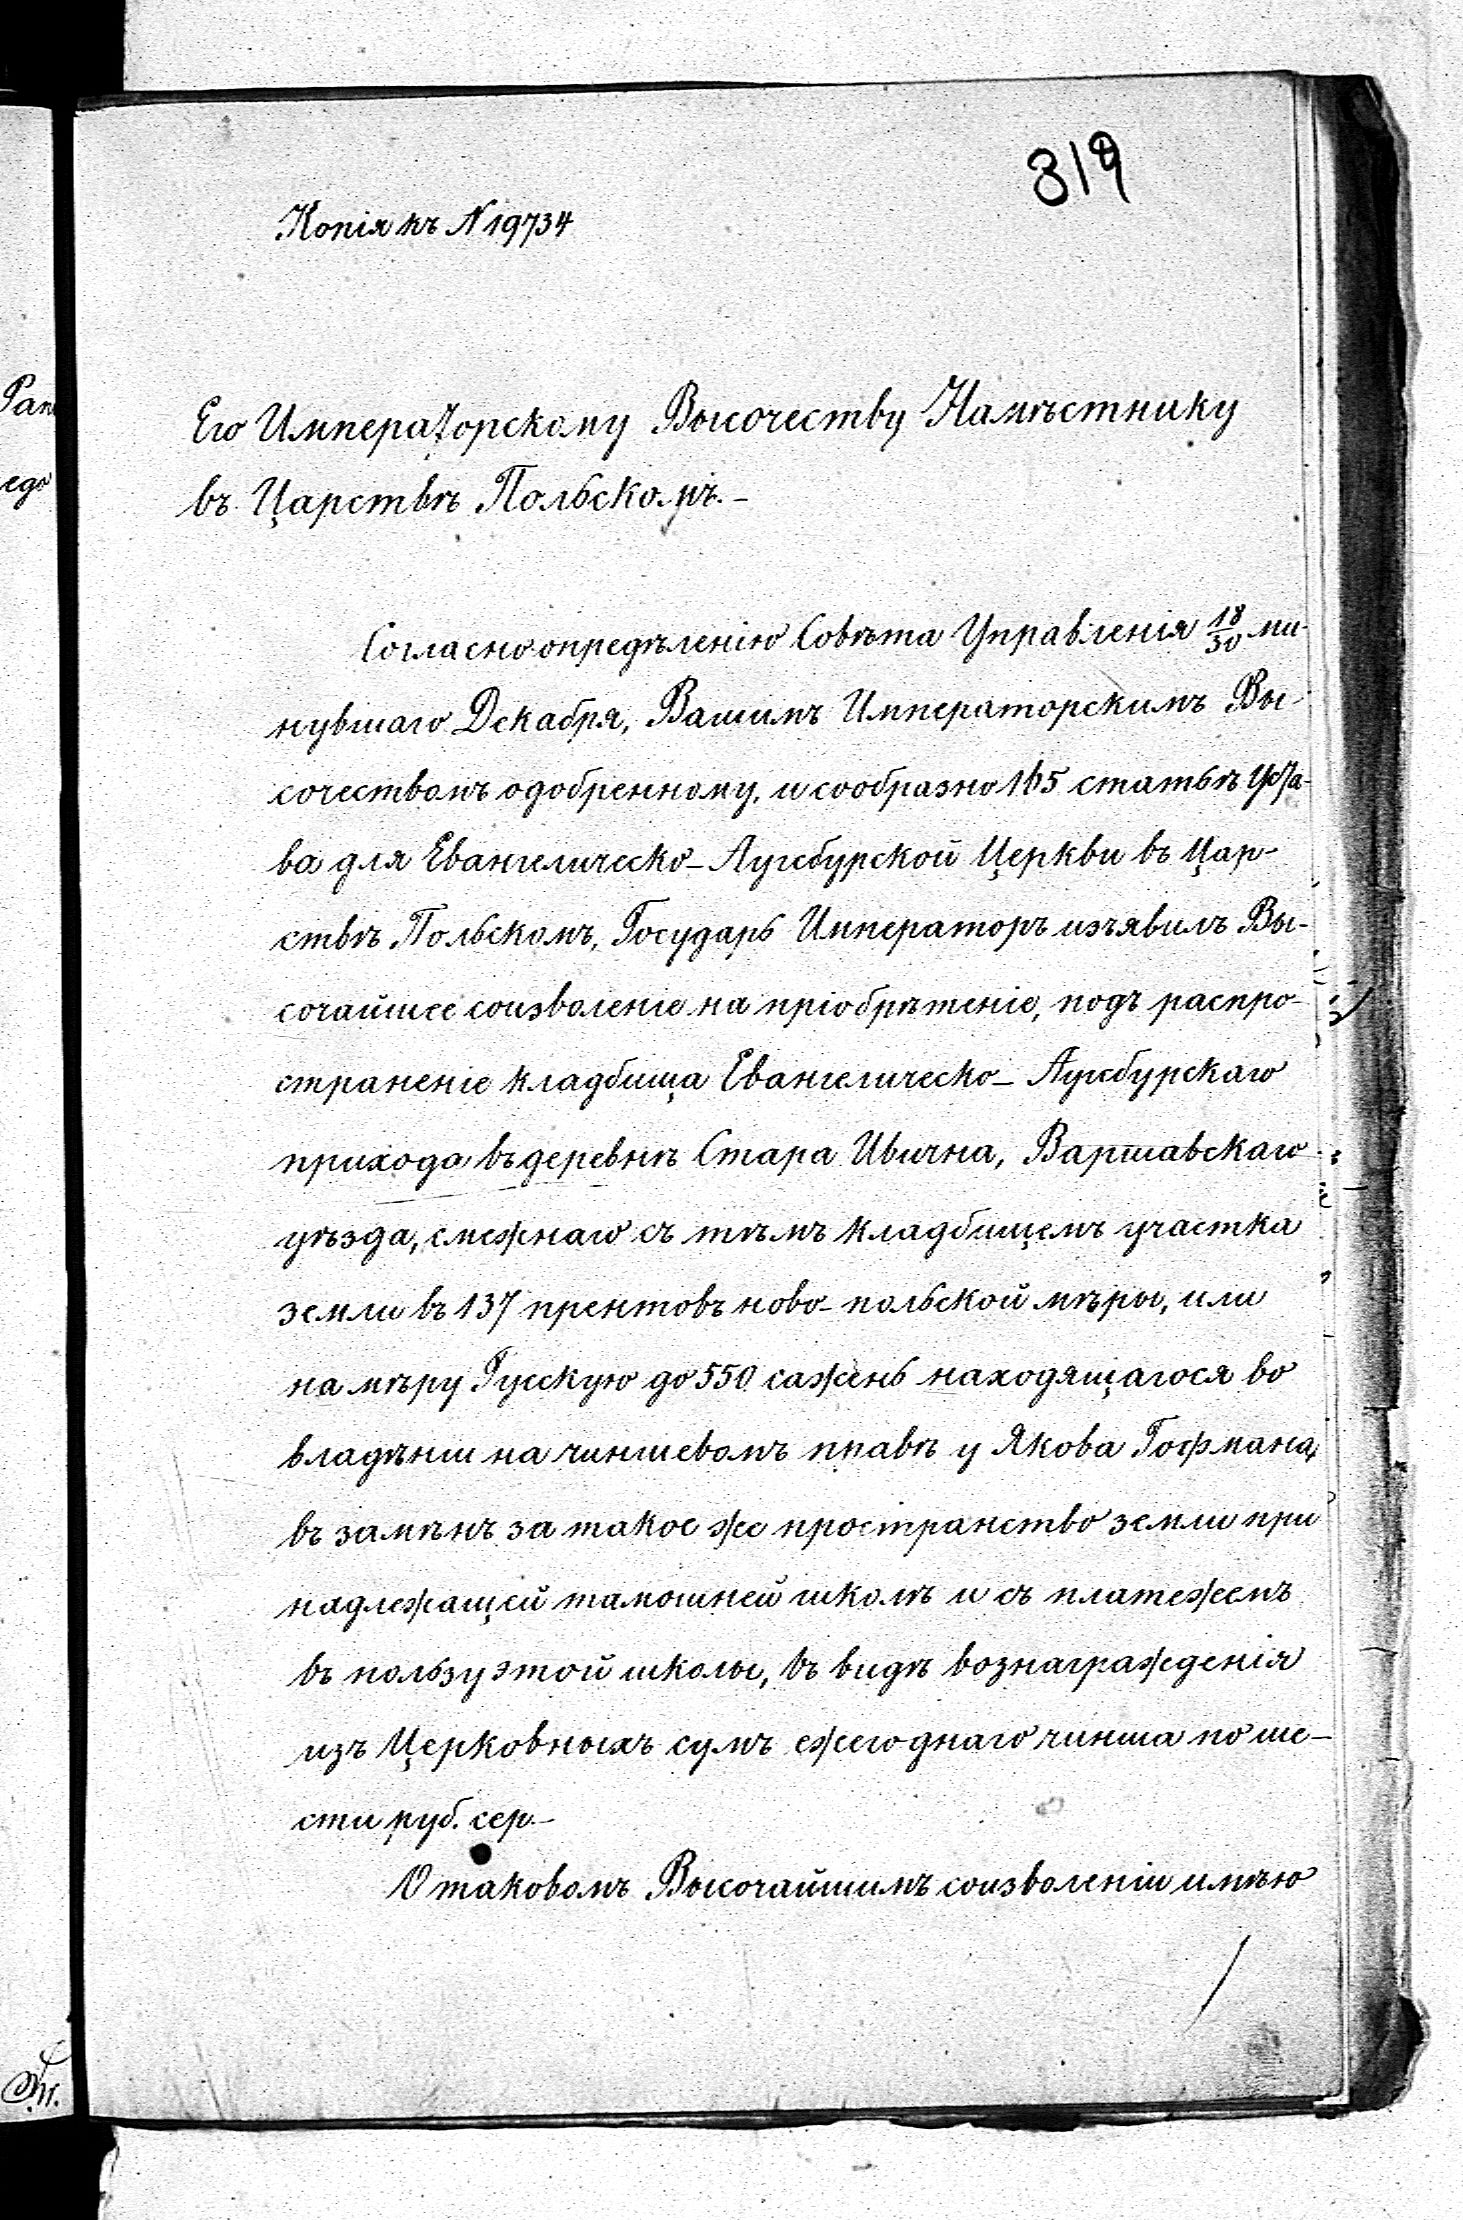 319
Копія къ N 19734
Его Императорскому Высочеству Намѣстнику
въ Царствѣ Польскомъ.-
Согласно опредѣленію Совѣта Управленія 18/30 ми-
нувшаго Декабря, Вашимъ Императорскимъ Вы-
сочествомъ одобренному, и сообразно 165 статьѣ Уста-
ва для Евангелическо-Аугсбурской Церкви въ Цар-
ствѣ Польскомъ, Государь Императоръ изъявилъ Вы-
сочайшее соизволеніе на пріобрѣтеніе, подъ распро-
страненіе кладбища Евангелическо-Аугсбурскаго
прихода въ деревнѣ Стара Ивична, Варшавскаго
уѣзда, смежнаго съ тѣмъ кладбищемъ участка
земли въ 137 прентовъ ново-польской мѣры, или
на мѣру Русскую до 550 сажень находящагося во
владѣніи на чиншевомъ правѣ у Якова Гофмана,
въ замѣнъ за такое же пространство земли при
надлежащей тамошней школѣ и съ платежемъ
въ пользу этой школы, въ видѣ вознагражденія
изъ Церковныхъ сумъ ежегоднаго чинша по ше-
сти руб. сер.-
О таковомъ Высочайшимъ соизволеніи имѣю
Pan
ego